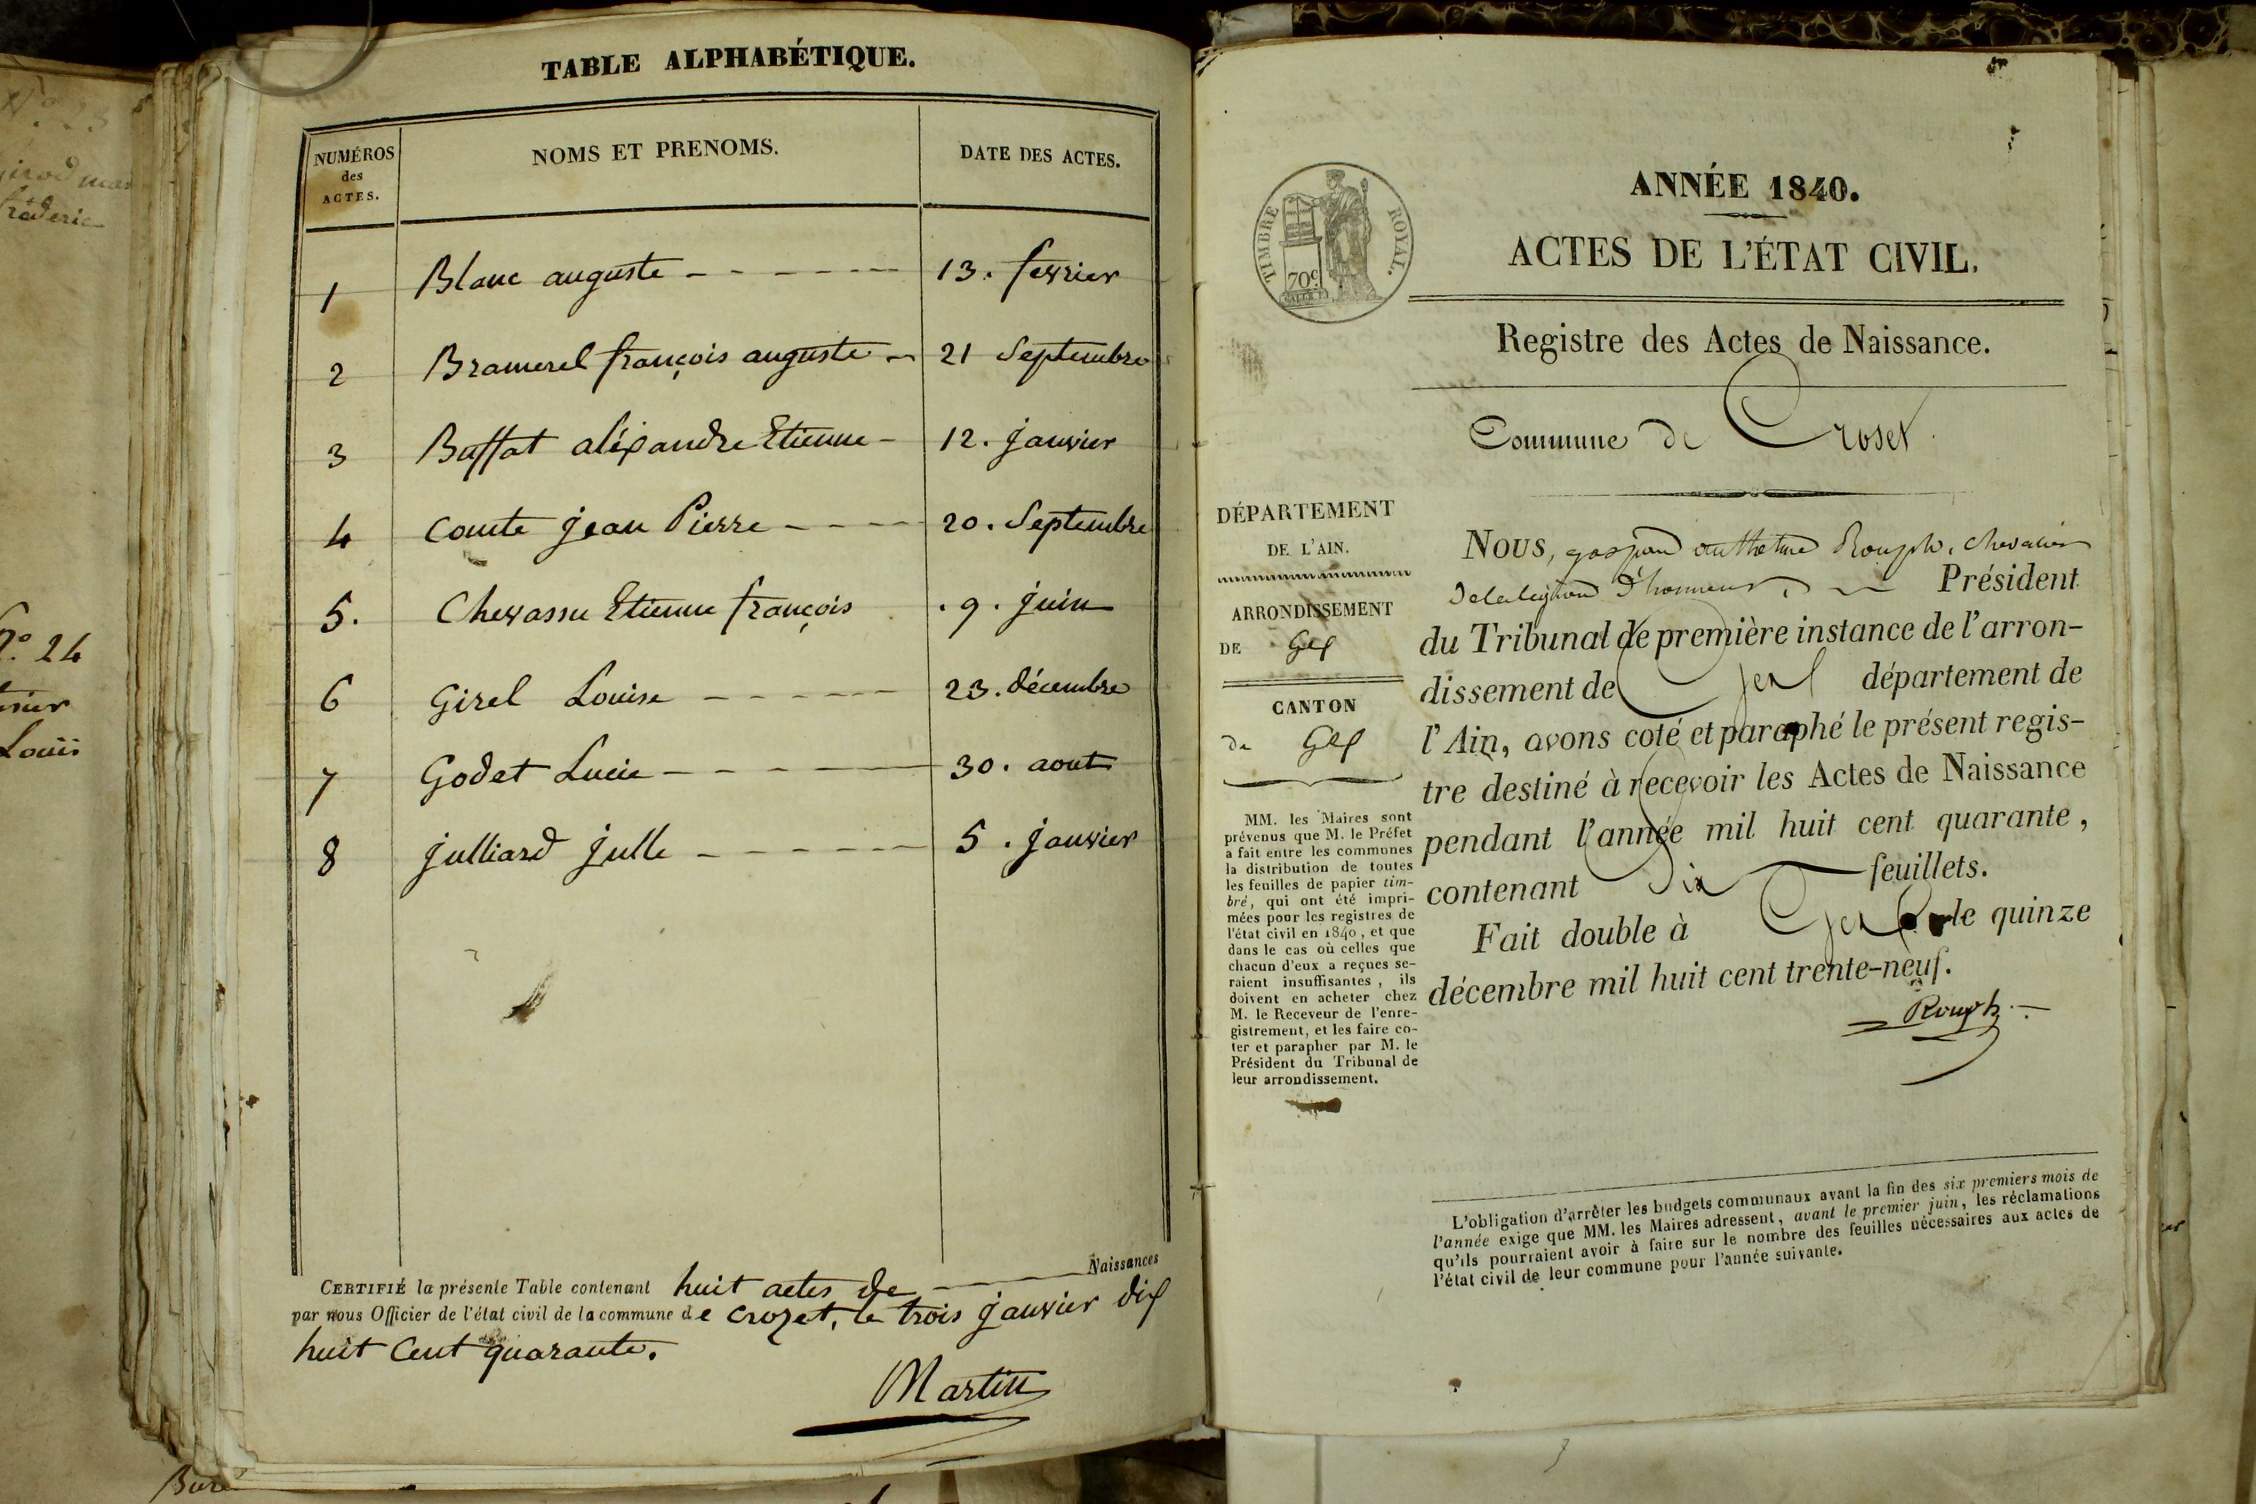 N° 23
Girod
frederic
N° 24
Louis
TABLE ALPHABÉTIQUE.
NUMÉROS des ACTES. NOMS ET PRENOMS. DATE DES ACTES.
1 Blanc auguste - - - - - - - 13. fevrier
2 Bramerel françois auguste - 21 Septembre
3 Buffat aléxandre Etienne - 12. janvier
4 Comte jean Pierre - - - - 20. Septembre
5. Chevassu Etienne françois . 9. juin
6 Girel Louise - - - - - - 23. décembre
7 Godet Lucie - - - - - - 30. aout
8 julliard julle - - - - - - 5. janvier
CERTIFIÉ la présente Table contenant huit actes de Naissances
par nous Officier de l'état civil de la commune de Crozet, le trois janvier dix
huit Cent quarante.
Martin
TIMBRE ROYAL.
70c
ANNÉE 1840.
ACTES DE L'ÉTAT CIVIL.
Registre des Actes de Naissance.
Commune de Croset
DÉPARTEMENT
DE L'AIN.
ARRONDISSEMENT
DE Gex
CANTON
de Gex
MM. les Maires sont
prévenus que M. le Préfet
a fait entre les communes
la distribution de toutes
les feuilles de papier tim-
bré, qui ont été impri-
mées pour les registres de
l'état civil en 1840, et que
dans le cas où celles que
chacun d'eux a reçues se-
raient insuffisantes, ils
doivent en acheter chez
M. le Receveur de l'enre-
gistrement, et les faire co-
ter et parapher par M. le
Président du Tribunal de
leur arrondissement.
NOUS, gaspard Rouph, chevalier
de la légion d'honneur, Président
du Tribunal de première instance de l'arron-
dissement de Gex département de
l'Ain, avons coté et paraphé le présent regis-
tre destiné à recevoir les Actes de Naissance
pendant l'année mil huit cent quarante,
contenant Dix feuillets.
Fait double à Gex le quinze
décembre mil huit cent trente-neuf.
Rouph
L'obligation d'arrêter les budgets communaux avant la fin des six premiers mois de
l'année exige que MM. les Maires adressent, avant le premier juin, les réclamations
qu'ils pourraient avoir à faire sur le nombre des feuilles nécessaires aux actes de
l'état civil de leur commune pour l'année suivante.